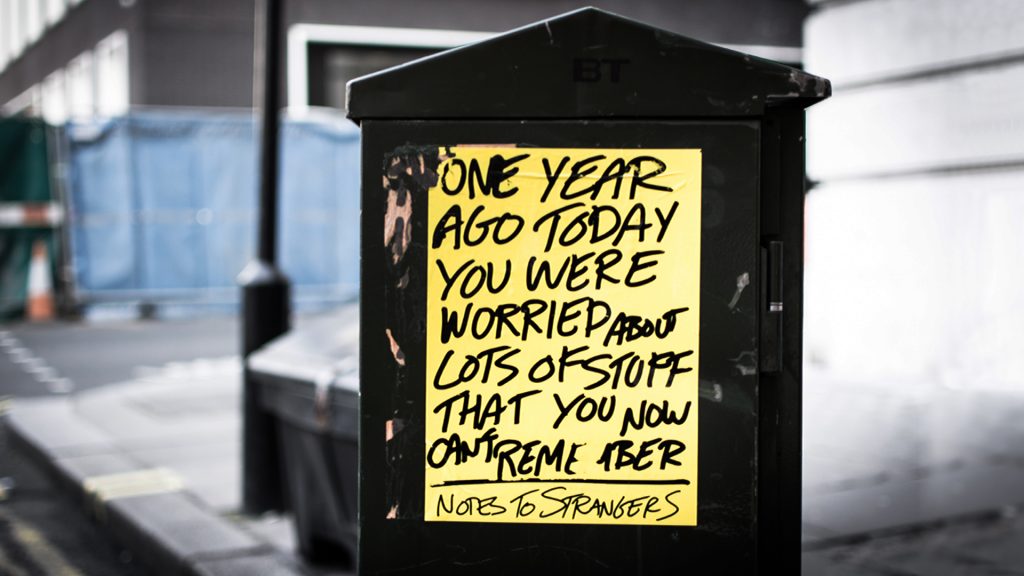 BT
ONE YEAR
AGO TODAY
YOU WERE
WORRIED ABOUT
LOTS OF STUFF
THAT YOU NOW
CAN'T REMEMBER
NOTES TO STRANGERS